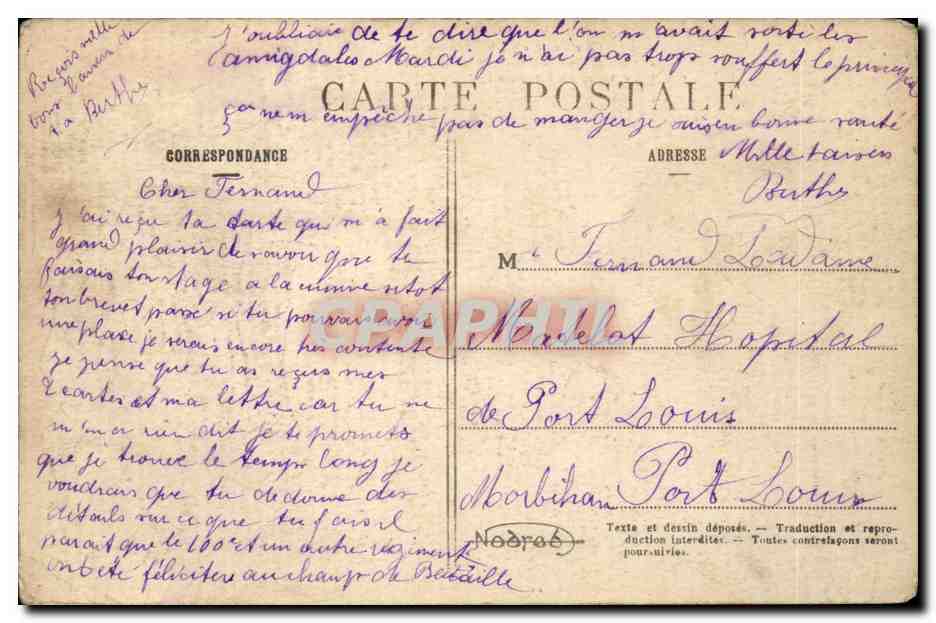 J'oubliais de te dire que l'on m'avait sorti les
amigdales Mardi je n'ai pas trop souffert le principal
CARTE POSTALE
ça nem empêche pas de manger je suis en bonne santé
Reçois mille
bons
de
ta Berthe
CORRESPONDANCE
Cher Fernand
J'ai reçu ta carte qui m'a fait
grand plaisir de savoir que te
faisais ton stage a la si tot
ton brevet passé si tu pouvais avoir
une plase je serais encore tres contente
je pense que tu as reçus mes
2 cartes et ma lettre car tu ne
m'en rien dit je te promets
que je trouve le temps long je
voudrais que tu de donne des
détails sur ce que tu fais il
parait que le 100e et un autre regiment
été féliciter au champ de Bataille
ADRESSE
Mille baisers
Berthe
M Fernand Ladame
Matelot Hopital
de Port Louis
Morbihan Port Louis
Nodreb
Texte et dessin déposés. — Traduction et repro-
duction interdites. — Toutes contrefaçons seront
poursuivies.
CPAPHIL